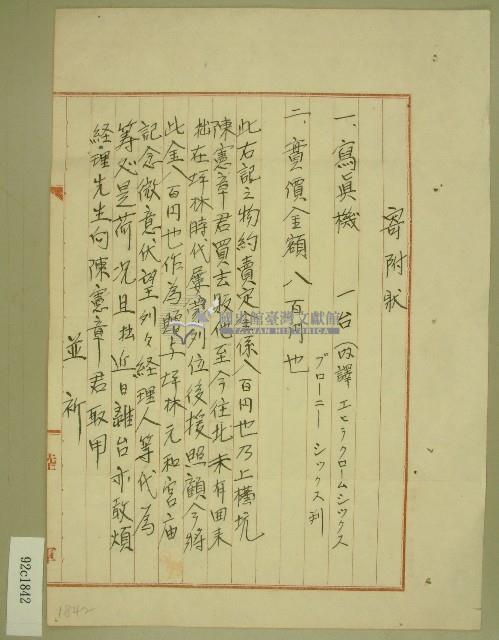 寄附狀
一、寫眞機 一台(内譯 エヒラクロームシックス
ブローニー シックス判
二、賣價金額 八百円也
此右記之物約賣定金係八百円也乃上横坑
陳憲章君買去後他至今往北未有回来
拙在坪林時代屢蒙列位後援照顧今將
此金八百円也作為 坪林元和宮庙
記念微意伏望列々経理人等代為
筹必是荷况且拙近日離台亦敢煩
経理先生向陳憲章君取甲
並祈
國史館臺灣文獻館
TAIWAN HISTORICA
陸
軍
92c1842
1842